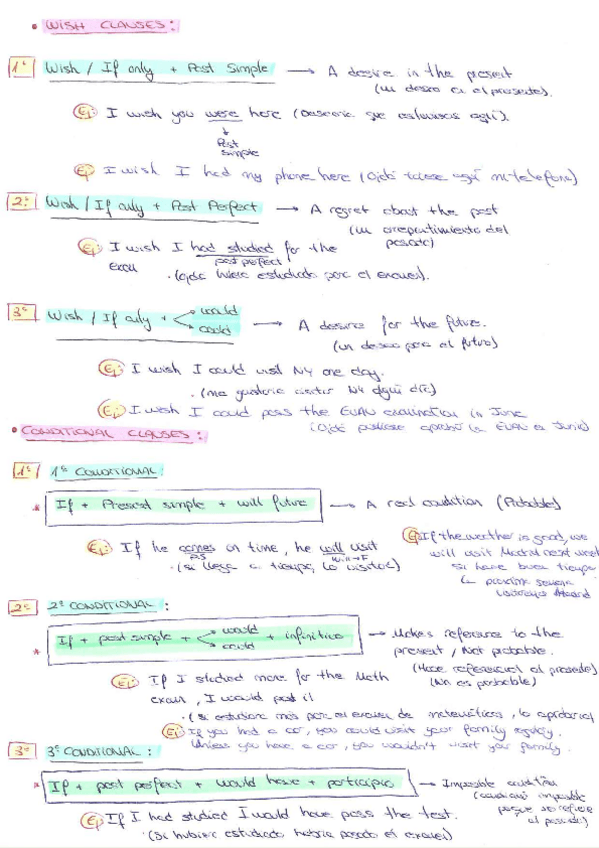 • WISH CLAUSES:
1º Wish / If only + Past Simple → A desire in the present
(un deseo en el presente).
Ej: I wish you were here (Desearía que estuvieras aquí).
↓
Past
simple
Ej I wish I had my phone here (Ojalá tuviese aquí mi teléfono)
2º Wish / If only + Past Perfect → A regret about the past
(un arrepentimiento del
pasado)
Ej: I wish I had studied for the
past perfect
exam . (ojalá hubiera estudiado para el examen).
3º Wish / If only + would
could → A desire for the future.
(un deseo para el futuro)
Ej: I wish I could visit NY one day.
. (me gustaría visitar NY algún día)
Ej: I wish I could pass the EVAU examination in June
(Ojalá pudiese aprobar la EVAU en Junio)
• CONDITIONAL CLAUSES:
1º 1º CONDITIONAL:
* If + Present simple + will future → A real condition (Probable)
Ej: If he comes on time, he will visit
P.S
. (si llega a tiempo, lo visitará)
Ej If the weather is good, we
will visit Madrid next week
si hace buen tiempo
la próxima semana
Madrid
2º 2º CONDITIONAL:
* If + past simple + would
could + infinitivo → Makes reference to the
present / Not probable.
(Hace referencia al presente)
(No es probable)
Ej: If I studied more for the Math
exam, I would past it
. (si estudiase más para el examen de matemáticas, lo aprobaría)
Ej: If you had a car, you could visit your family
Unless you have a car, you wouldn't visit your family.
3º 3º CONDITIONAL:
* If + past perfect + would have + participio → Impossible condition
(condición imposible
porque se refiere
al pasado)
Ej If I had studied I would have pass the test.
. (Si hubiera estudiado habría pasado el examen)